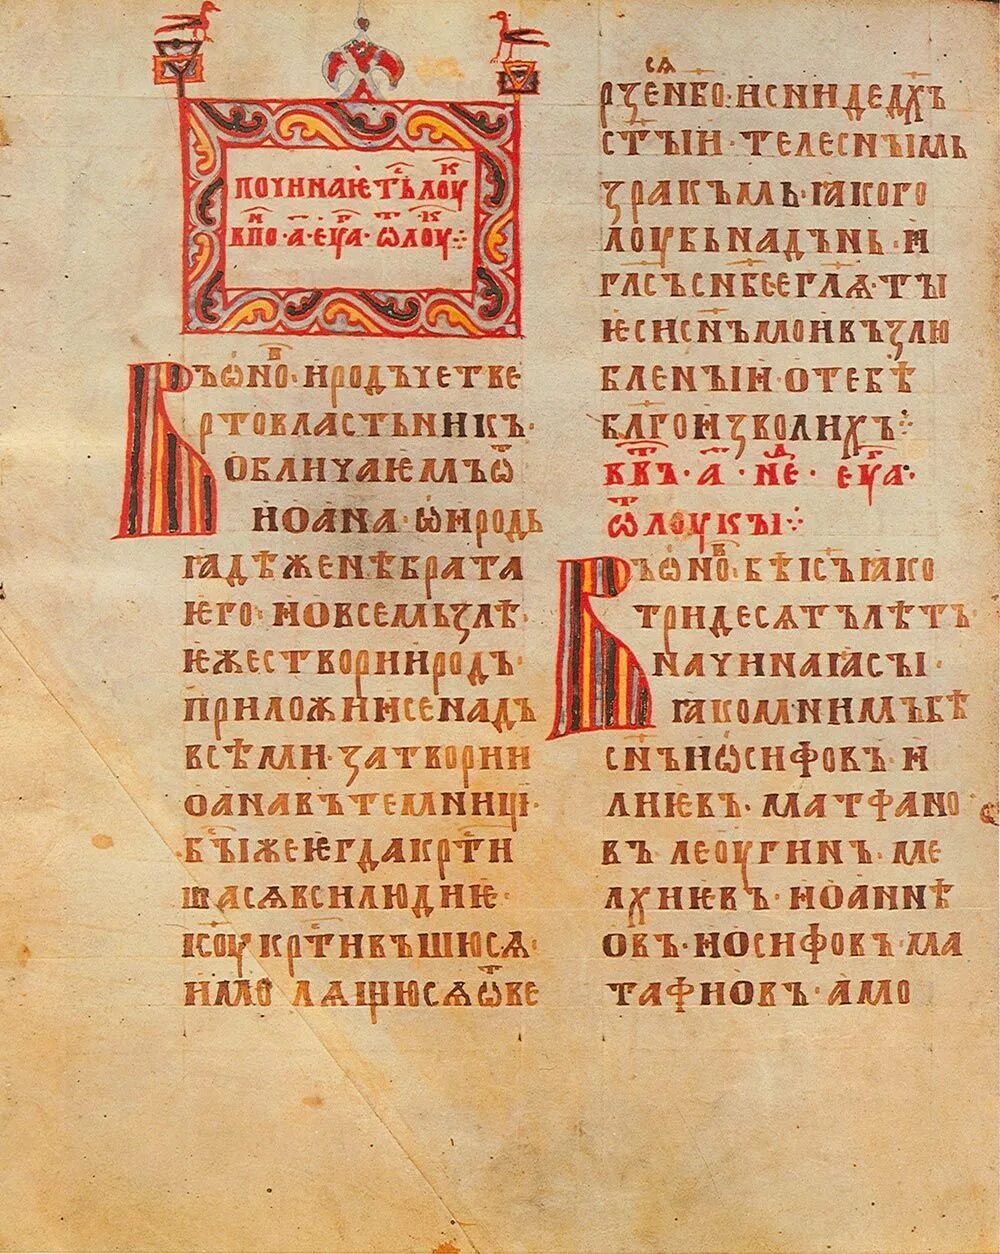 почнаѥтьлоук
впо·а·еѵа·ѿлоук⁘
Въѡно·иродъчетве
ртовластьникъ·
обличаѥмъѿ
иоана·ѡирод
ꙗдѣженѣбрата
ѥго·иовсемьзлѣ·
ѥжествориирѡдъ·
приложиисенадъ
всѣми·затвории
оанавътемници·
бъıжеѥгдакрти
шасѧвсилюдиѥ·
ꙇсоукртивъшюсѧ·
имолѧщюсѧѿве
рзенбо·исниде дхъ
стъıи·телеснъıмь
зракъмь·ꙗкого
лоубьнадънь·и
гласънбсеглѧ·тъı
ѥсиснъмоивъзлю
бленъıи·отебѣ
благоизволихъ⁘
ввъ·а·не·еѵа·
ѿлоукъı⁘
Въѡно·бѣісъꙗко
тридесѧтълѣтъ·
начинаꙗсъı·
ꙗкомнимъбѣ
снъиѡсифовъ·и
лиѥвъ·матфано
въ·леоугиинъ·ме
лхиѥвъ·иоаннѣ
овъ·иосифовъ·ма
тафиовъ·амо